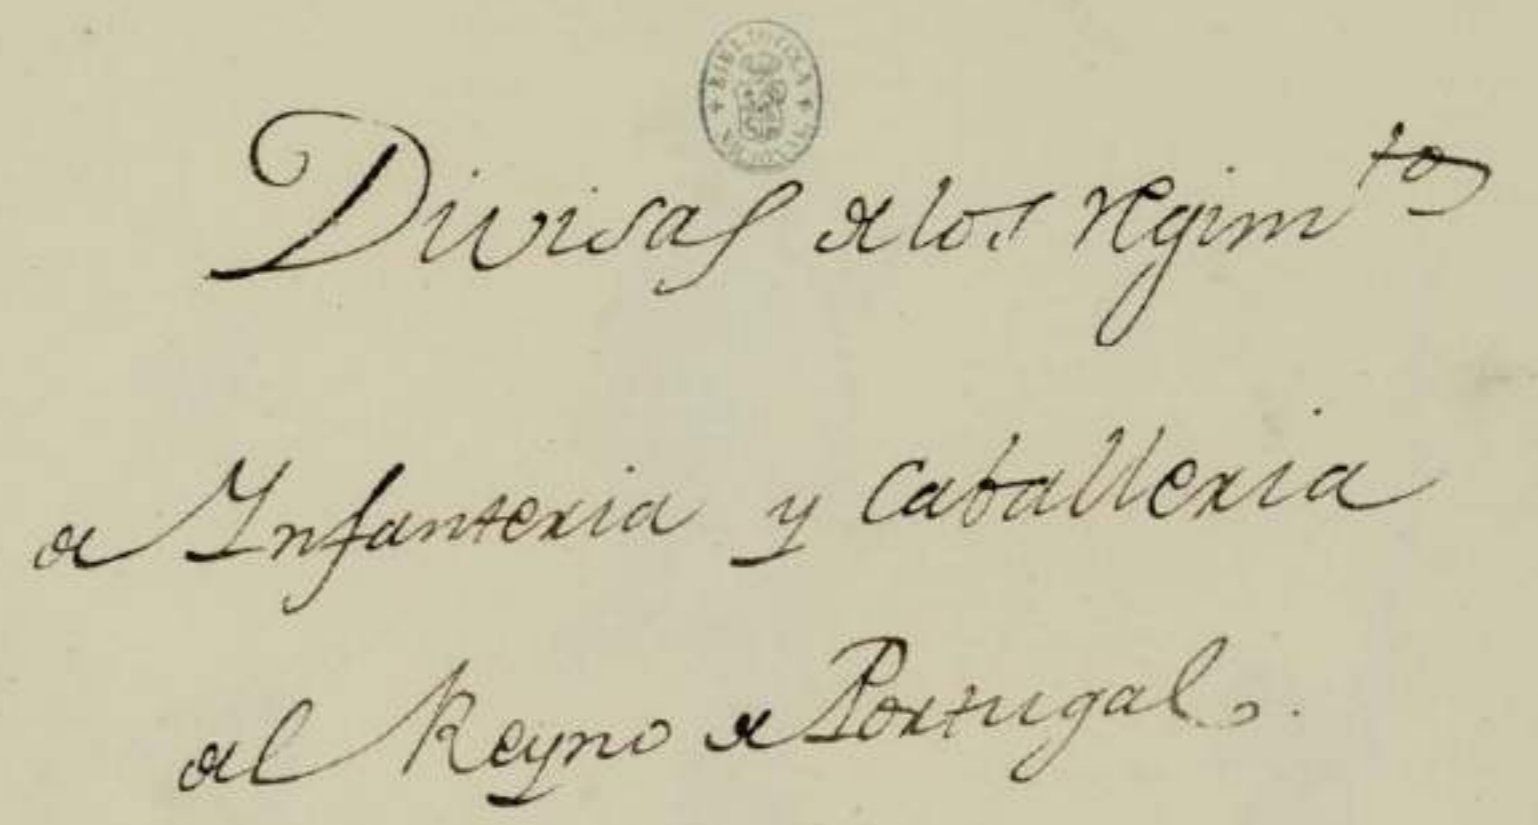 BIBLIOTECA NACIONAL
Divisas de los regim.tos
de Infanteria y Caballeria
del Reyno de Portugal.